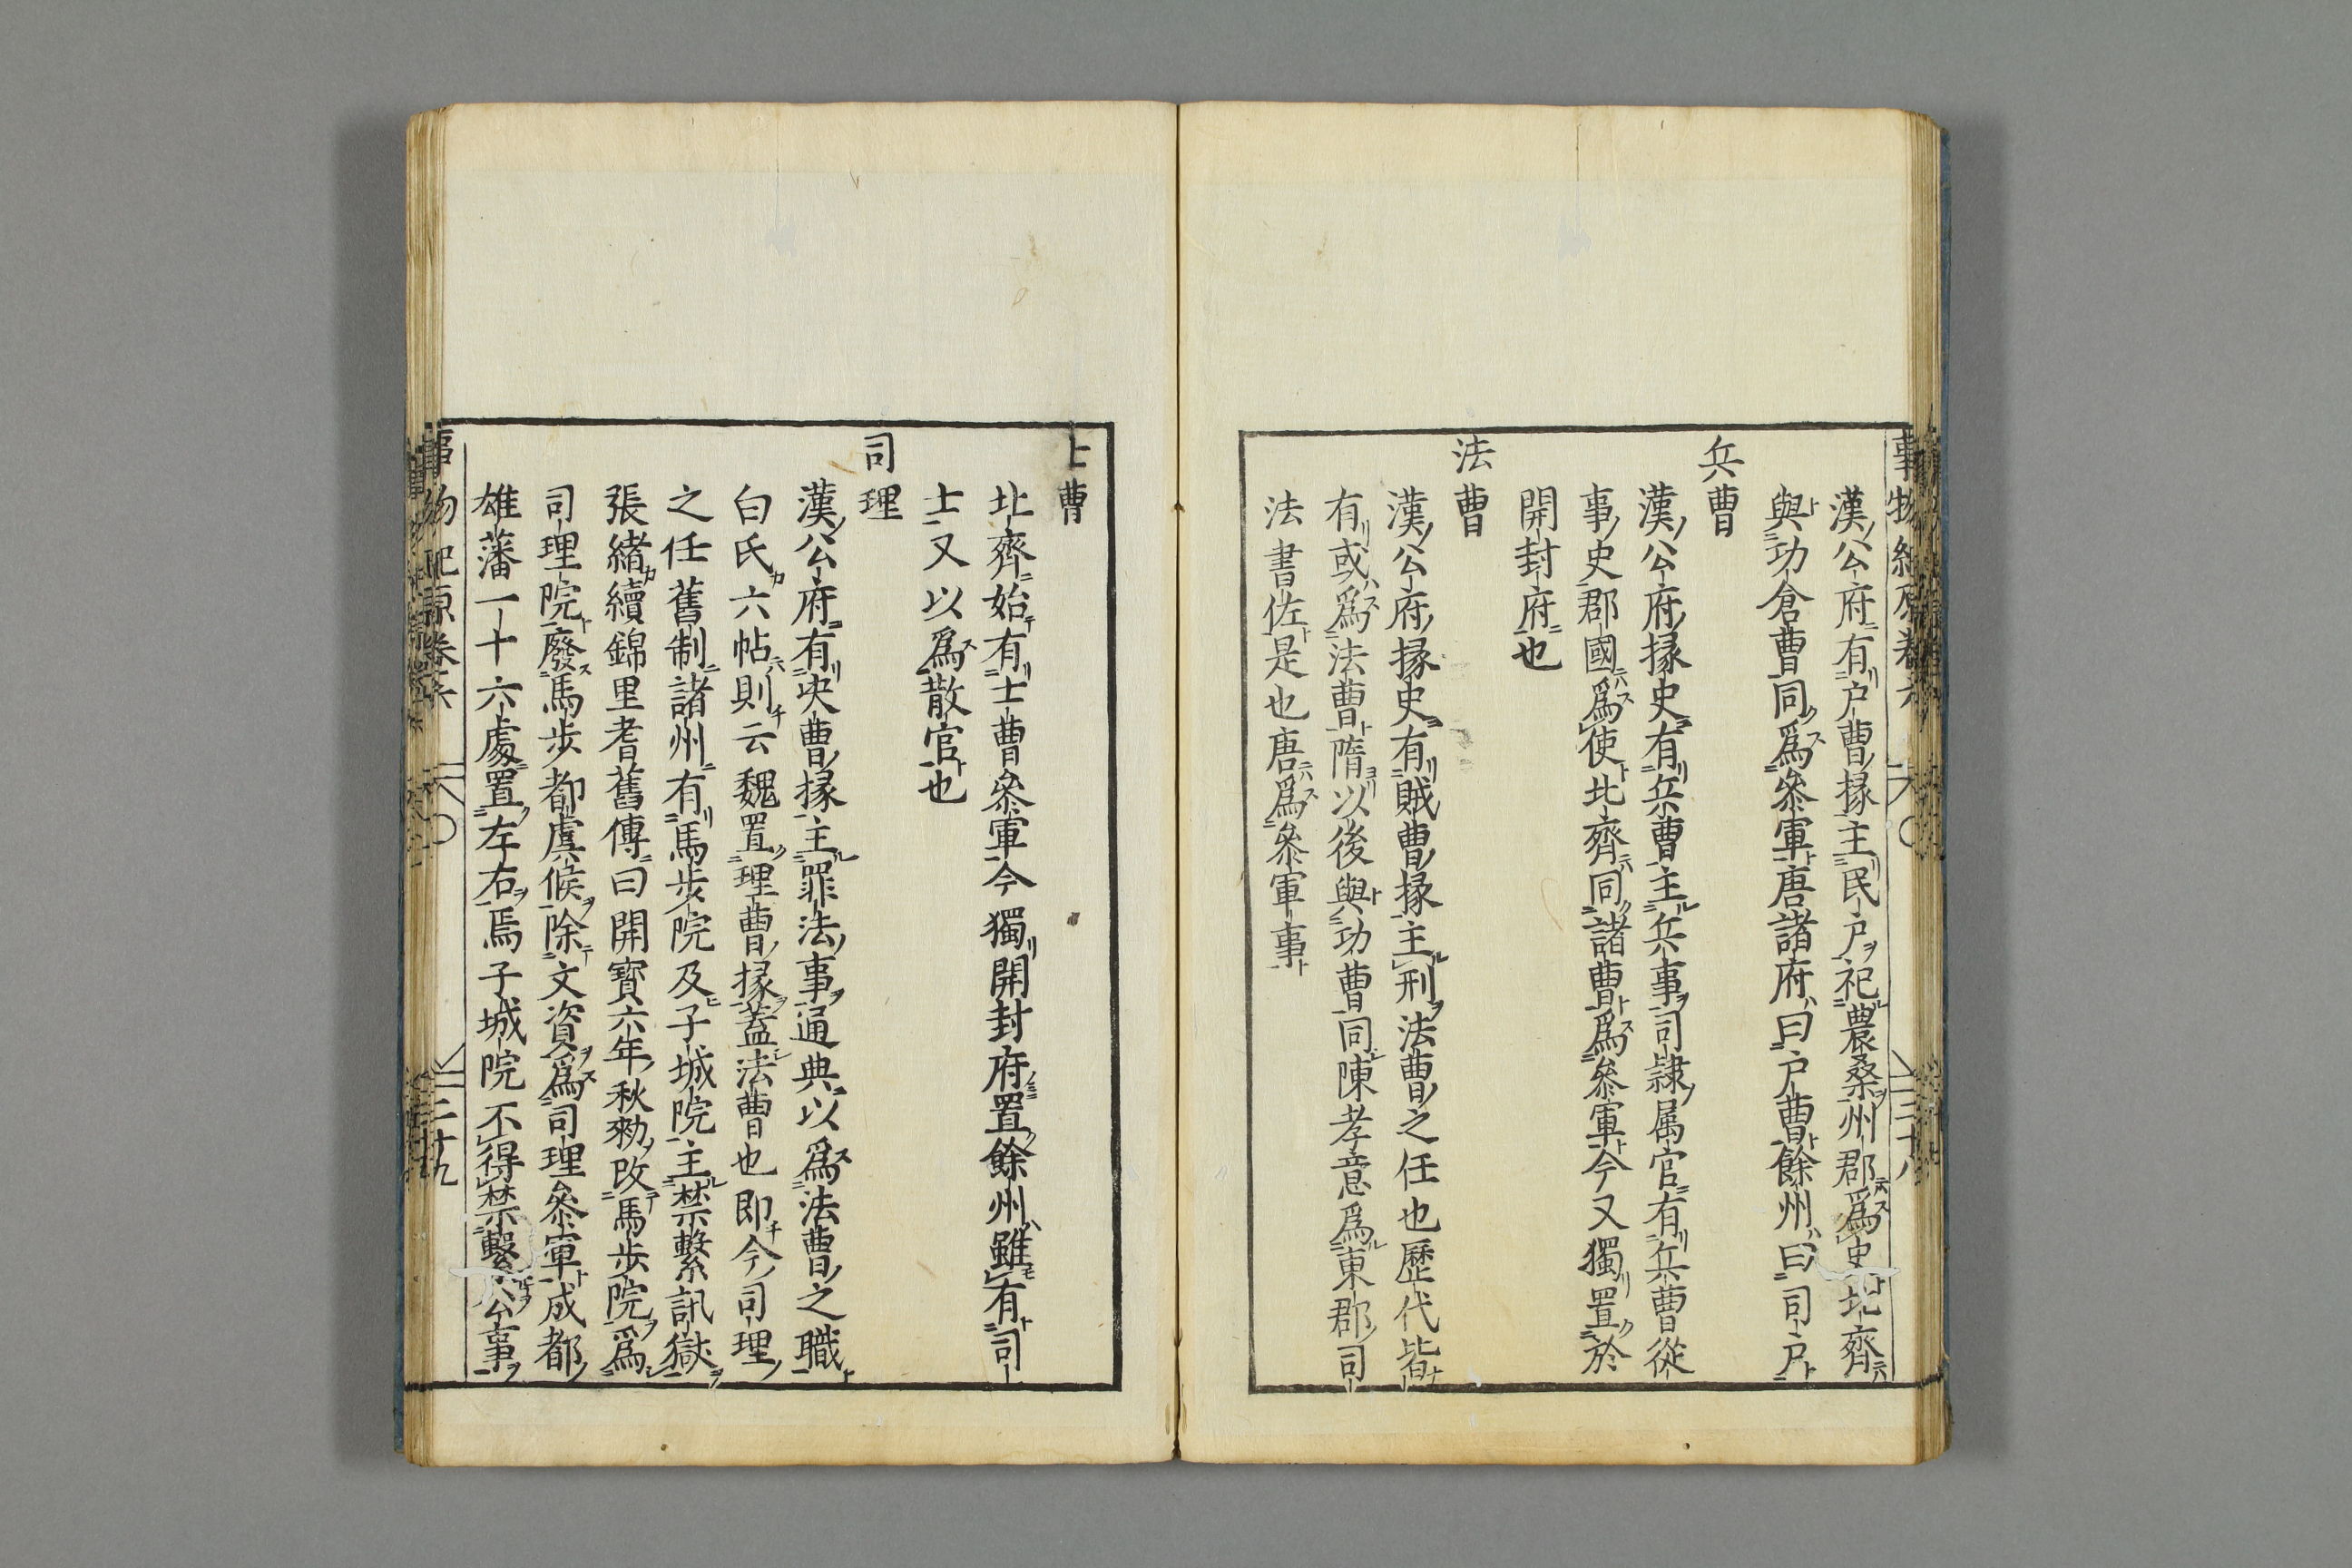 漢公府有户曹掾主民户祀農桑州郡爲史北齊
與功倉曹同爲參軍唐諸府曰户曹餘州曰司户
兵曹
漢公府掾史有兵曹主兵事司隷属官有兵曹從
事史郡國爲使北齊同諸曹爲參軍今又獨置於
開封府也
法曹
漢公府掾史有賊曹掾主刑法曹之任也歷代皆
有或爲法曹隋以後與功曹同陳孝意爲東郡司
法書佐是也唐爲參軍事
士曹
北齊始有士曹參軍今獨開封府置餘州雖有司
士又以爲散官也
司理
漢公府有决曹掾主罪法事通典以爲法曹之職
白氏六帖則云魏置理曹掾蓋法曹也即今司理
之任舊制諸州有馬步院及子城院主禁繫訊獄
張緒續錦里耆舊傳曰開寳六年秋勑改馬步院爲
司理院廢馬步都虞候除文資爲司理參軍成都
雄藩一十六處置左右焉子城院不得禁繫公事
事物紀原卷六 二十九